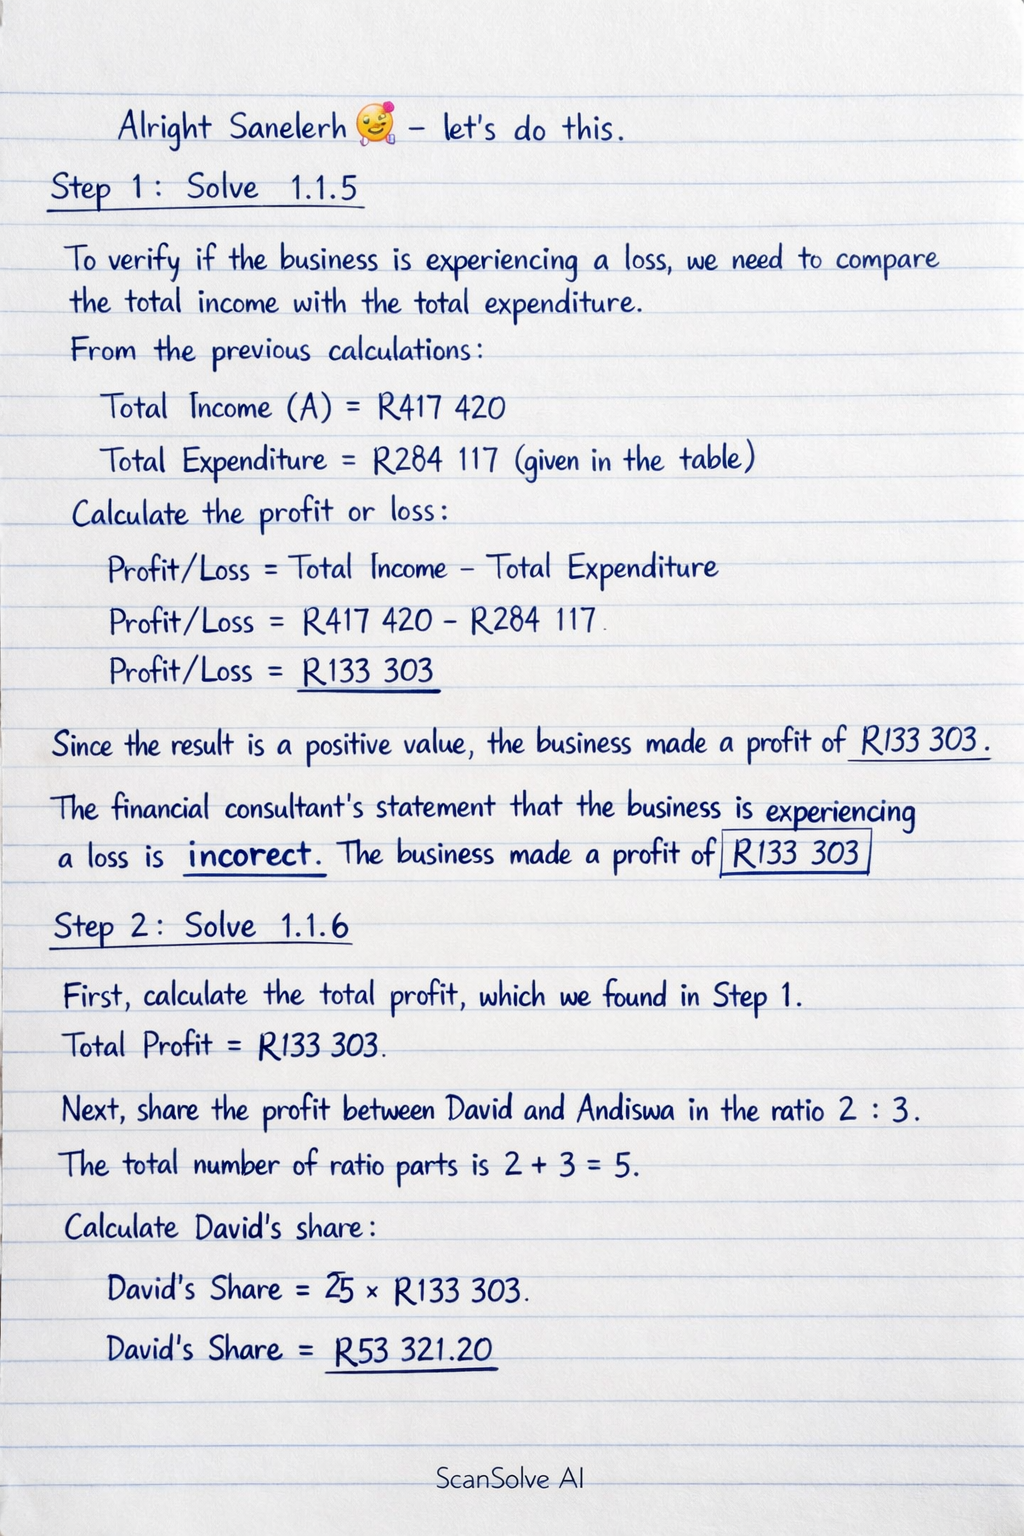 Alright Sanelerh🥰 – let's do this.
Step 1: Solve 1.1.5
To verify if the business is experiencing a loss, we need to compare
the total income with the total expenditure.
From the previous calculations:
Total Income (A) = R417 420
Total Expenditure = R284 117 (given in the table)
Calculate the profit or loss:
Profit/Loss = Total Income – Total Expenditure
Profit/Loss = R417 420 – R284 117.
Profit/Loss = R133 303
Since the result is a positive value, the business made a profit of R133 303.
The financial consultant's statement that the business is experiencing
a loss is incorect. The business made a profit of R133 303
Step 2: Solve 1.1.6
First, calculate the total profit, which we found in Step 1.
Total Profit = R133 303.
Next, share the profit between David and Andiswa in the ratio 2 : 3.
The total number of ratio parts is 2 + 3 = 5.
Calculate David's share:
David's Share = 25 × R133 303.
David's Share = R53 321.20
ScanSolve AI